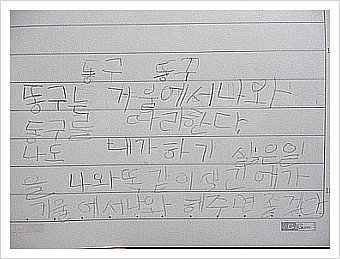 동구 동구
똥구는 거울에서나와
동구를 따라한다,
나도 내가하기 싫은일
을 나와똑같이생긴 애가
거울에서나와 해주면좋겠다